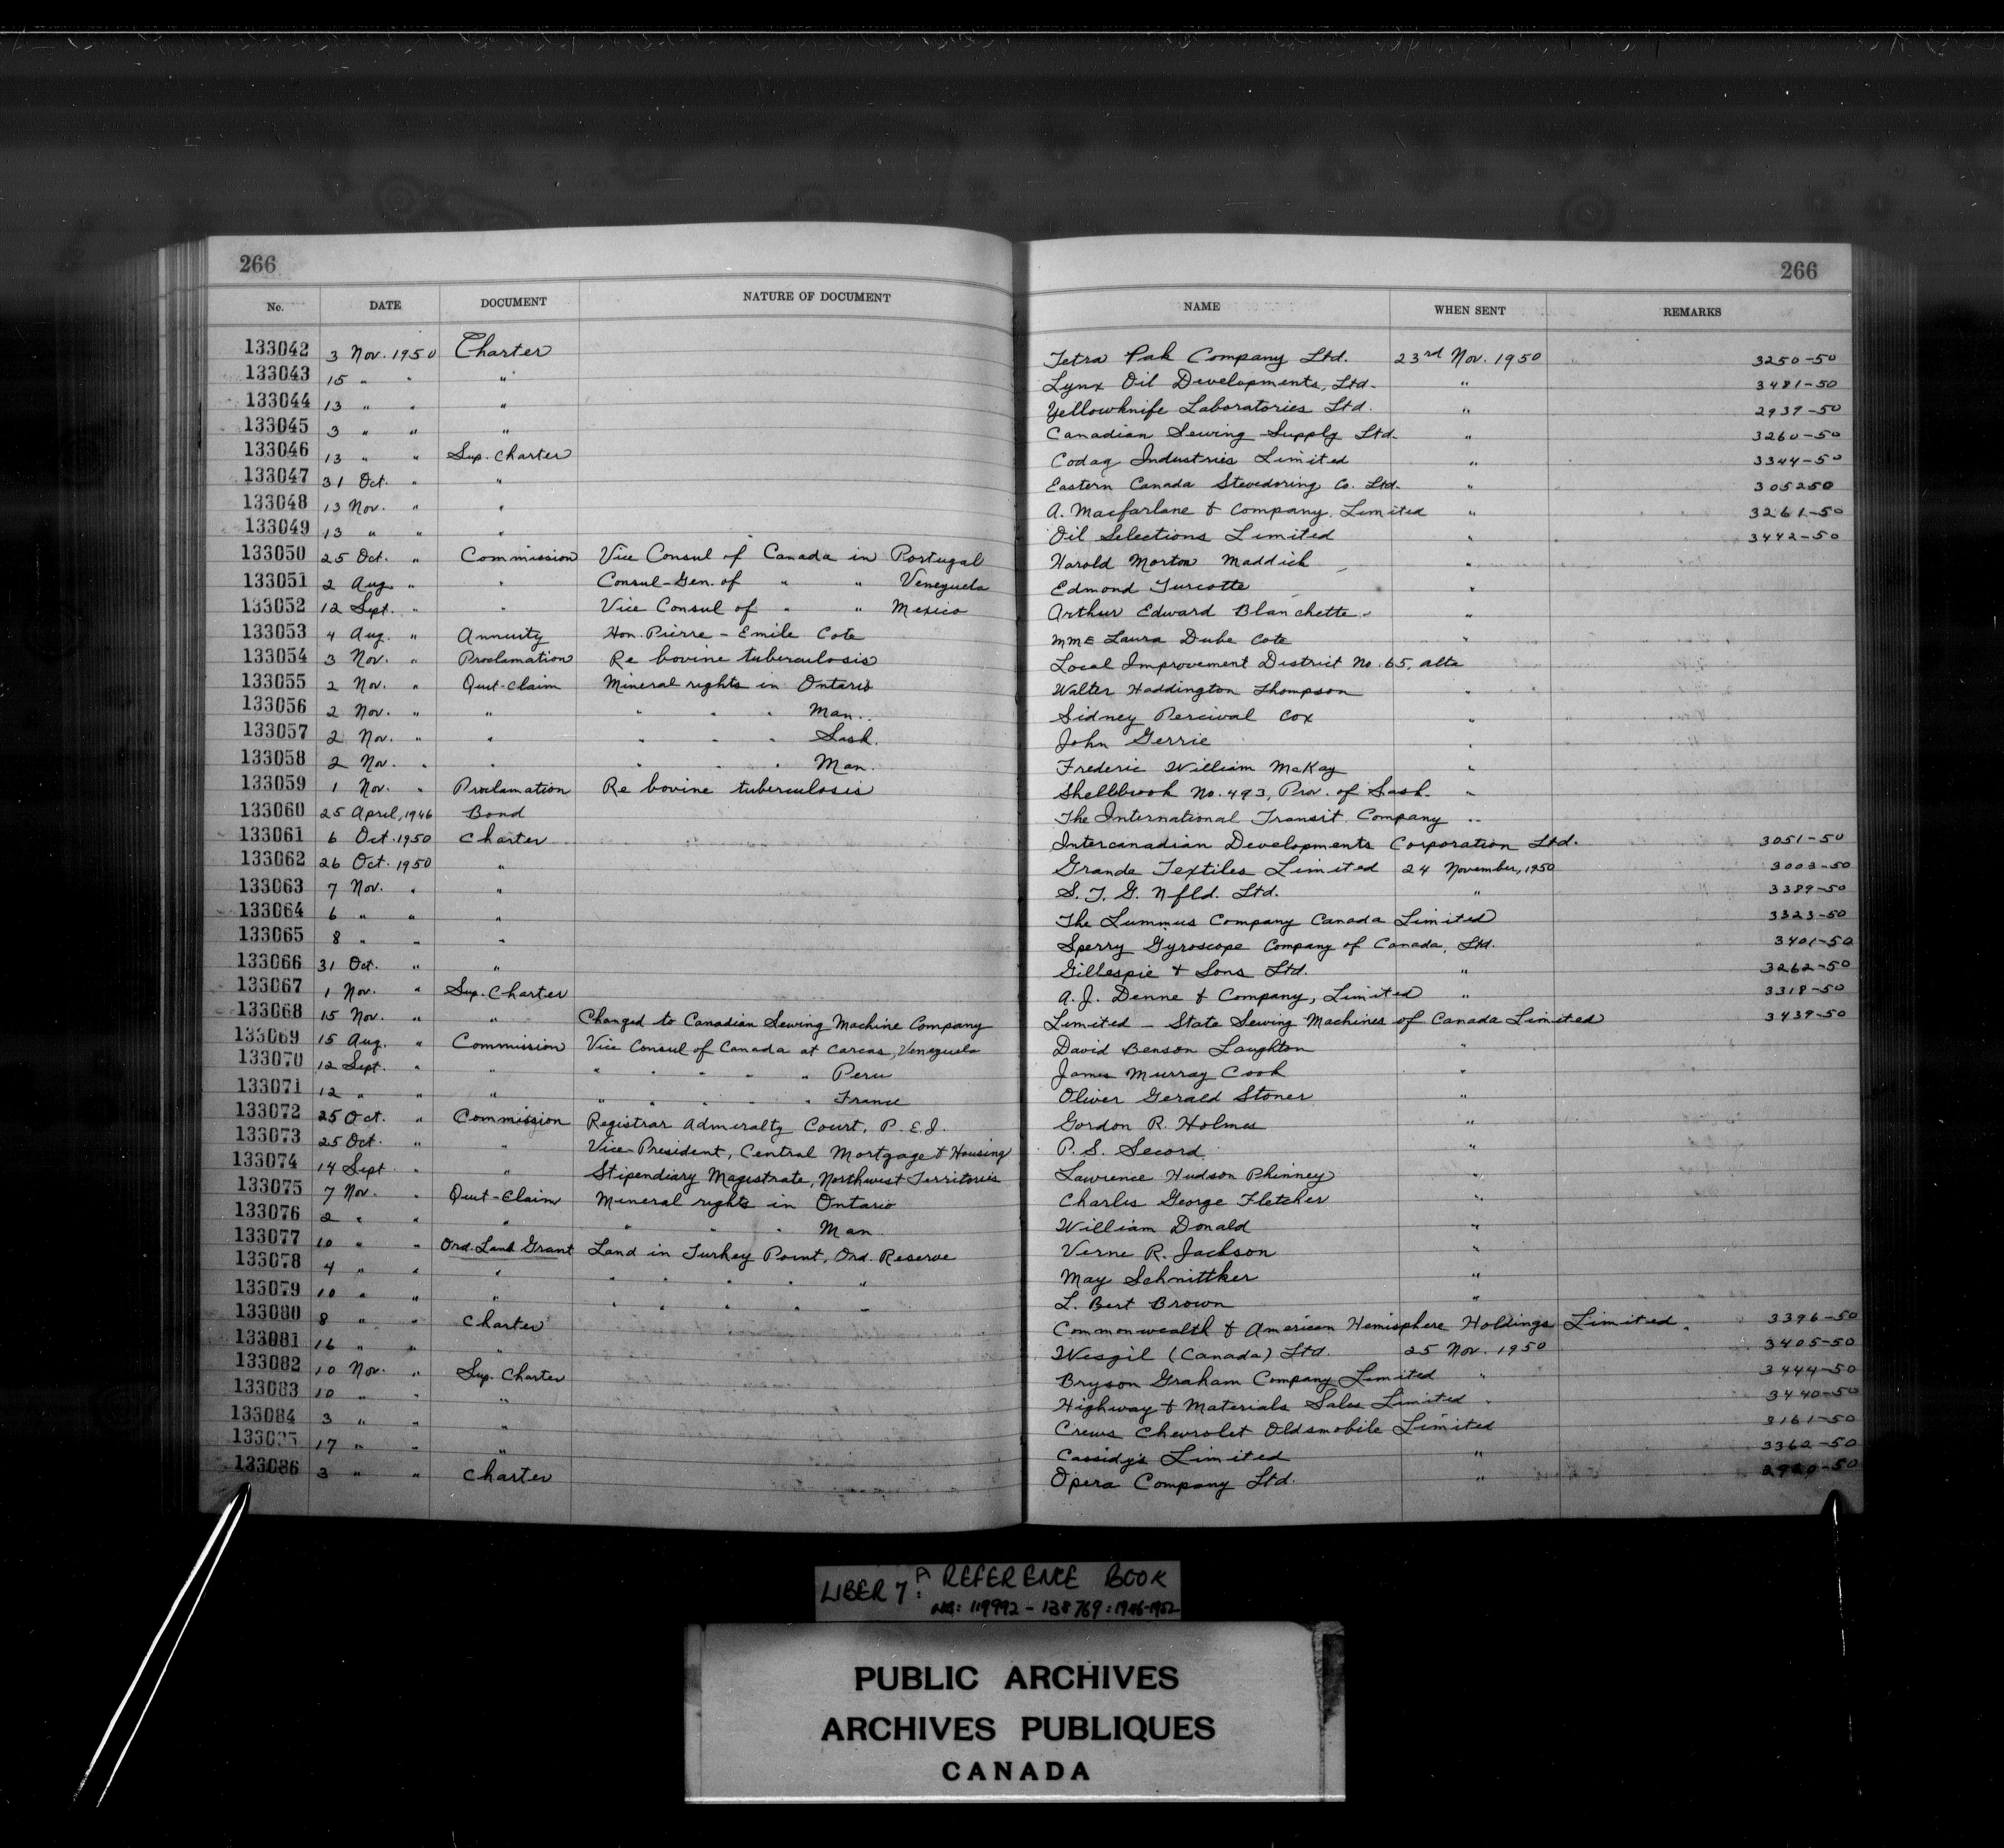 266 266
No. DATE DOCUMENT NATURE OF DOCUMENT NAME WHEN SENT REMARKS
133042 3 Nov. 1950 Charter Tetra Pak Company Ltd. 23rd Nov. 1950 3250-50
133043 15 " " " Lynx Oil Developments, Ltd. " 3481-50
133044 13 " " " Yellowknife Laboratories Ltd. " 2937-50
133045 3 " " " Canadian Sewing Supply Ltd. " 3260-50
133046 13 " " Sup. Charter Codag Industries Limited " 3344-50
133047 31 Oct. " " Eastern Canada Stevedoring Co. Ltd. " 305250
133048 13 Nov. " " A. Macfarlane & Company, Limited " 3261-50
133049 13 " " " Oil Selections Limited " 3442-50
133050 25 Oct. " Commission Vice Consul of Canada in Portugal Harold Morton Maddick "
133051 2 Aug. " " Consul-Gen. of " " Venezuela Edmond Turcotte "
133052 12 Sept. " " Vice Consul of " " Mexico Arthur Edward Blanchette "
133053 4 Aug. " Annuity Hon. Pierre-Emile Cote MME Laura Dube Cote "
133054 3 Nov. " Proclamation Re bovine tuberculosis Local Improvement District No. 65, alta
133055 2 Nov. " Quit-claim Mineral rights in Ontario Walter Haddington Thompson "
133056 2 Nov. " " " " " Man. Sidney Percival Cox "
133057 2 Nov. " " " " " Sask. John Gerrie "
133058 2 Nov. " " " " " Man. Frederic William McKay "
133059 1 Nov. " Proclamation Re bovine tuberculosis Shellbrook No. 493, Prov. of Sask. "
133060 25 April, 1946 Bond The International Transit Company "
133061 6 Oct. 1950 Charter Intercanadian Developments Corporation Ltd. 3051-50
133062 26 Oct. 1950 " Grande Textiles Limited 24 November, 1950 3003-50
133063 7 Nov. " " S. T. G. Nfld. Ltd. " 3389-50
133064 6 " " " The Lummus Company Canada Limited 3323-50
133065 8 " " " Sperry Gyroscope Company of Canada, Ltd. 3401-50
133066 31 Oct. " " Gillespie & Sons Ltd. " 3262-50
133067 1 Nov. " Sup. Charter A. J. Denne & Company, Limited " 3318-50
133068 15 Nov. " " Changed to Canadian Sewing Machine Company Limited - State Sewing Machines of Canada Limited 3439-50
133069 15 Aug. " Commission Vice Consul of Canada at Carcas, Venezuela David Benson Laughton "
133070 12 Sept. " " " " " " " Peru James Murray Cook "
133071 12 " " " " " " " " France Oliver Gerald Stoner "
133072 25 Oct. " Commission Registrar Admiralty Court, P.E.I. Gordon R. Holmes "
133073 25 Oct. " " Vice-President, Central Mortgage & Housing P. S. Secord "
133074 14 Sept " " Stipendiary Magistrate, Northwest Territories Lawrence Hudson Phinney "
133075 7 Nov. " Quit-Claim Mineral rights in Ontario Charles George Fletcher "
133076 2 " " " " " " Man. William Donald "
133077 10 " " Ord. Land Grant Land in Turkey Point, Ord. Reserve Verne R. Jackson "
133078 4 " " " " " " " " May Schnittker "
133079 10 " " " " " " " " L. Bert Brown "
133080 8 " " Charter Commonwealth & American Hemisphere Holdings Limited. 3396-50
133081 16 " " " Wesgil (Canada) Ltd. 25 Nov. 1950 3405-50
133082 10 Nov. " Sup. Charter Bryson Graham Company Limited " 3444-50
133083 10 " " " Highway & Materials Sales Limited " 3440-50
133084 3 " " " Crews Chevrolet Oldsmobile Limited 3161-50
133085 17 " " " Cassidy's Limited " 3362-50
133086 3 " " Charter Opera Company Ltd. "
LIBER 7: A REFERENCE BOOK
NOS: 119992 - 138769: 1946-1952
PUBLIC ARCHIVES
ARCHIVES PUBLIQUES
CANADA